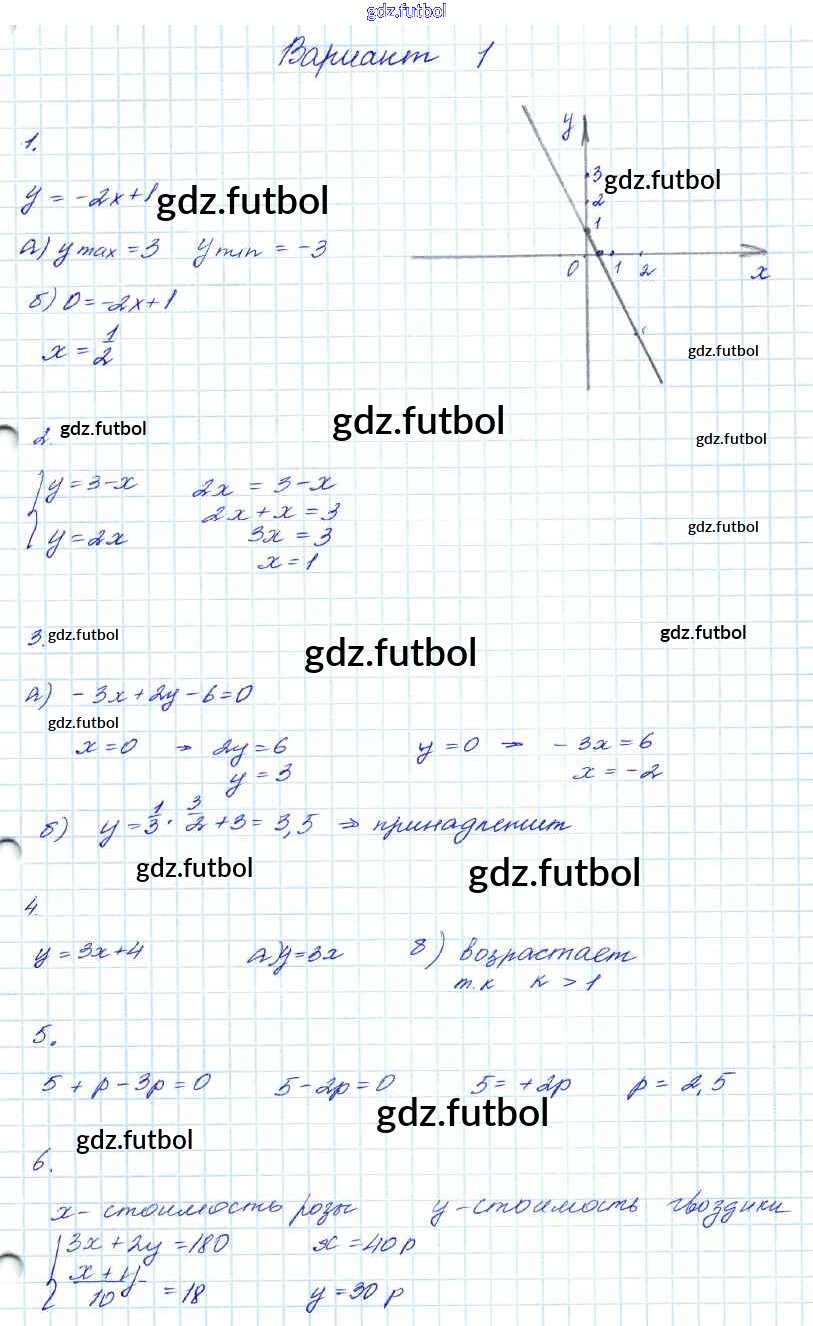 gdz.futbol
Вариант 1
1.
y = -2x+1 gdz.futbol
а) y max = 3 y min = -3
б) 0 = -2x+1
x = 1/2
y
3 gdz.futbol
2
1
0 1 2 x
gdz.futbol
2. gdz.futbol gdz.futbol gdz.futbol
{ y = 3-x 2x = 3-x
2x+x = 3
y = 2x 3x = 3 gdz.futbol
x = 1
3. gdz.futbol gdz.futbol gdz.futbol
а) -3x+2y-6=0
gdz.futbol
x=0 → 2y=6 y=0 → -3x=6
y=3 x=-2
б) y = 1/3 · 3/2 + 3 = 3,5 ⇒ принадлежит
gdz.futbol gdz.futbol
4.
y = 3x+4 а) y=3x в) возрастает
т.к к > 1
5.
5 + p - 3p = 0 5-2p=0 5=+2p p = 2,5
gdz.futbol
gdz.futbol
6.
x- стоимость розы y-стоимость гвоздики
{ 3x+2y =180 x =40 р
(x+y)/10 = 18 y = 30 р